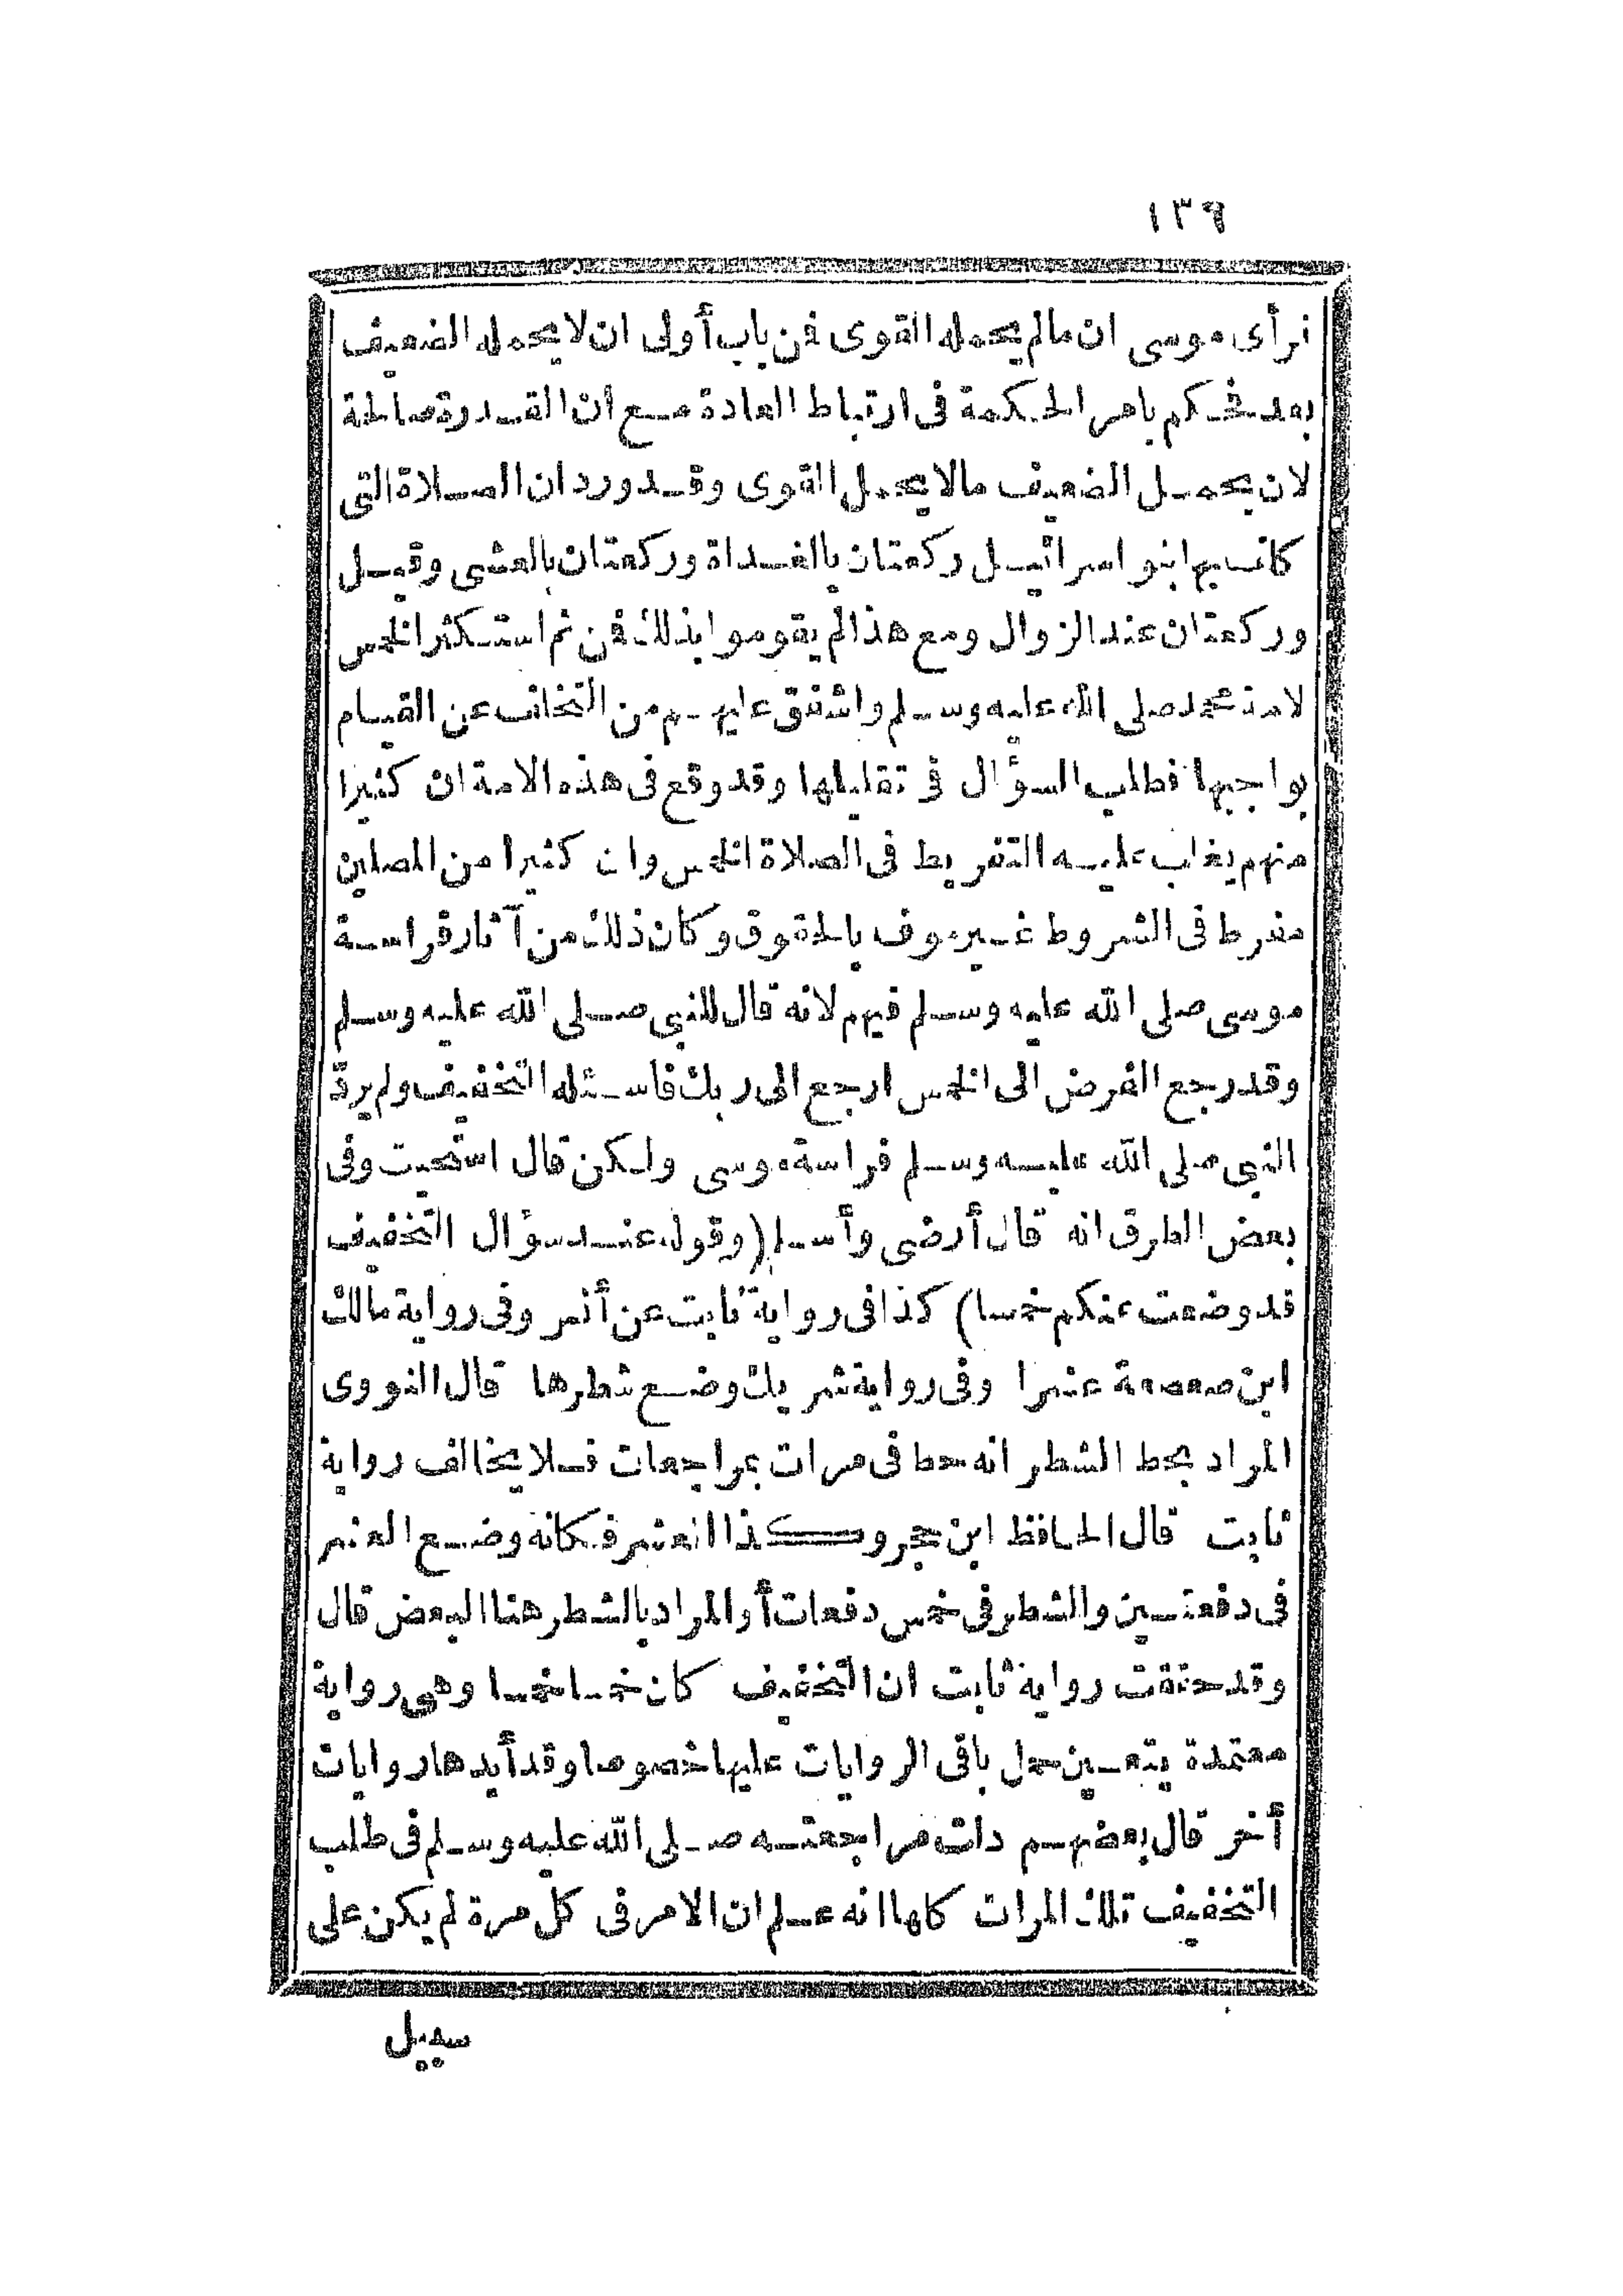 ١٣٦
فرأى موسى ان مالم يحمله القوى فمن باب أولى ان لا يحمله الضعيف
بعد فحكم باهر الحكمة فى ارتباط العادة مع ان القدرة صالحة
لان يحمل الضعيف مالا يحمل القوى وقد ورد ان الصلاة التى
كلف بها بنو اسرائيل ركعتان بالغداة وركعتان بالعشى وقيل
وركعتان عند الزوال ومع هذا لم يقوموا بذلك فمن ثم استكثر الخمس
لامة محمد صلى الله عليه وسلم واشفق عليهم من التخلف عن القيام
بواجبها فطلب السؤال فى تقليلها وقد وقع فى هذه الامة ان كثيرا
منهم يغلب عليه التفريط فى الصلاة الخمس وان كثيرا من المصلين
مفرط فى الشروط غير موف بالحقوق وكان ذلك من آثار فراسة
موسى صلى الله عليه وسلم فيهم لانه قال للنبى صلى الله عليه وسلم
وقد رجع الفرض الى الخمس ارجع الى ربك فاسئله التخفيف ولم يردّ
النبى صلى الله عليه وسلم فراسة موسى ولكن قال استحيت وفى
بعض الطرق انه قال أرضى وأسلم (وقوله عند سؤال التخفيف
قد وضعت عنكم خمسا) كذا فى رواية ثابت عن أنس وفى رواية مالك
ابن صعصعة عشرا وفى رواية شريك وضع شطرها قال النووى
المراد بحط الشطر انه حط فى مرات بمراجعات فلا يخالف رواية
ثابت قال الحافظ ابن حجر وكذا العشر فكانه وضع العشر
فى دفعتين والشطر فى خمس دفعات أو المراد بالشطر هنا البعض قال
وقد حققت رواية ثابت ان التخفيف كان خمسا خمسا وهى رواية
معتمدة يتعين حمل باقى الروايات عليها خصوصا وقد أيدها روايات
أخر قال بعضهم دلت مراجعته صلى الله عليه وسلم فى طلب
التخفيف تلك المرات كلها انه علم ان الامر فى كل مرة لم يكن على
سبيل